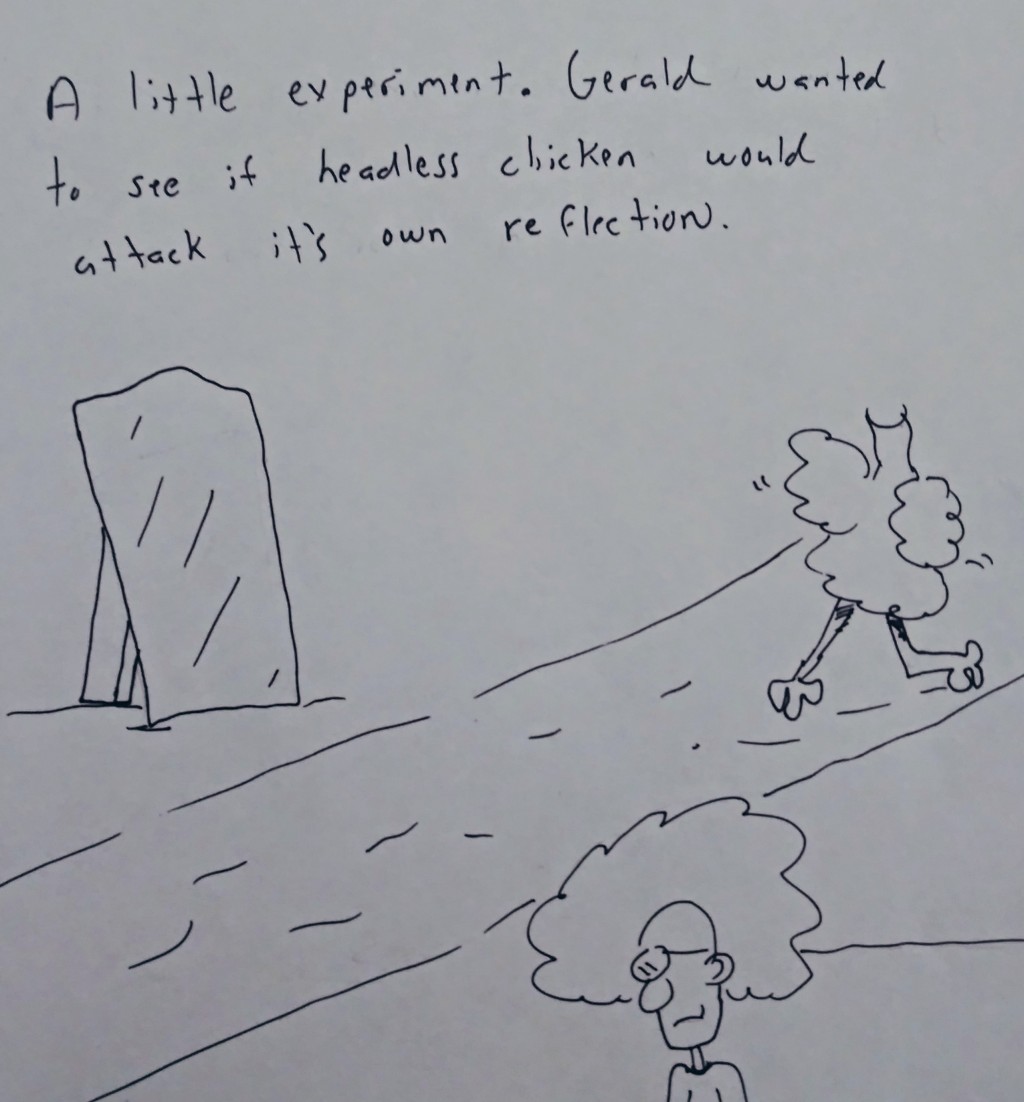 A little experiment. Gerald wanted
to see if headless chicken would
attack it's own reflection.